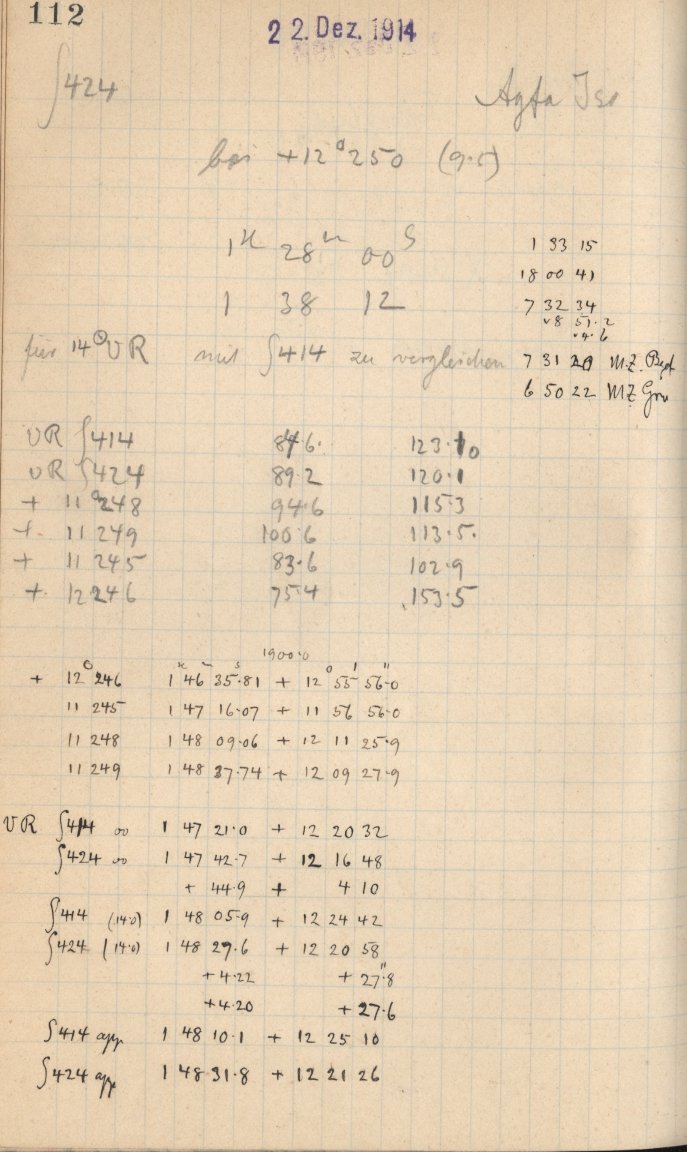 112
22. Dez. 1914
∫424 Agfa Iso
bei +12° 250 (9.5)
1h 28m 00s
1 38 12
1 33 15
18 00 41
7 32 34
für 14 VR mit ∫414 zu vergleichen
7 31 20 M.Z.
6 50 22 MZ
VR ∫414 84.6. 123.10
VR ∫424 89.2 120.1
+ 11° 248 94.6 115.3
+ 11 249 100.6 113.5.
+ 11 245 83.6 102.9
+ 12 246 75.4 153.5
1900.0
h m s ° ' "
+ 12° 246 1 46 35.81 + 12 55 56.0
11 245 1 47 16.07 + 11 56 56.0
11 248 1 48 09.06 + 12 11 25.9
11 249 1 48 37.74 + 12 09 27.9
VR ∫414 00 1 47 21.0 + 12 20 32
∫424 00 1 47 42.7 + 12 16 48
+ 44.9 + 4 10
∫414 (14.0) 1 48 05.9 + 12 24 42
∫424 (14.0) 1 48 29.6 + 12 20 58
+4.22 + 27".8
+4.20 + 27.6
∫414 app 1 48 10.1 + 12 25 10
∫424 app 1 48 31.8 + 12 21 26